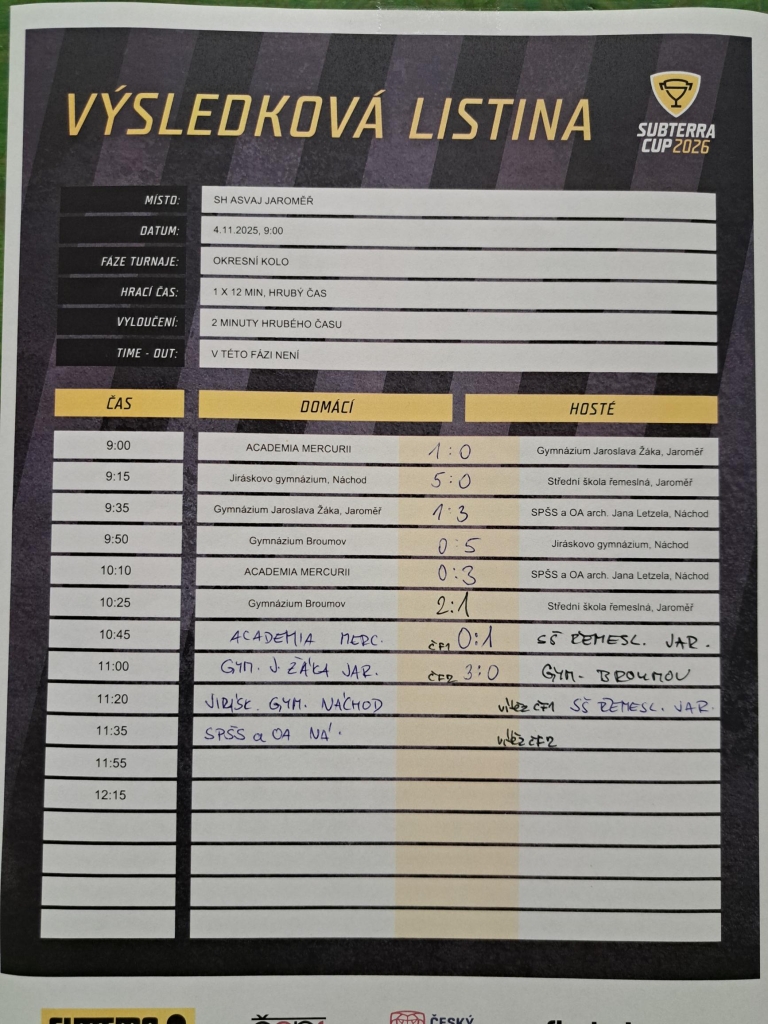 VÝSLEDKOVÁ LISTINA
SUBTERRA
CUP 2026
MÍSTO: SH ASVAJ JAROMĚŘ
DATUM: 4.11.2025, 9:00
FÁZE TURNAJE: OKRESNÍ KOLO
HRACÍ ČAS: 1 X 12 MIN, HRUBÝ ČAS
VYLOUČENÍ: 2 MINUTY HRUBÉHO ČASU
TIME - OUT: V TÉTO FÁZI NENÍ
ČAS DOMÁCÍ HOSTÉ
9:00 ACADEMIA MERCURII 1:0 Gymnázium Jaroslava Žáka, Jaroměř
9:15 Jiráskovo gymnázium, Náchod 5:0 Střední škola řemeslná, Jaroměř
9:35 Gymnázium Jaroslava Žáka, Jaroměř 1:3 SPŠS a OA arch. Jana Letzela, Náchod
9:50 Gymnázium Broumov 0:5 Jiráskovo gymnázium, Náchod
10:10 ACADEMIA MERCURII 0:3 SPŠS a OA arch. Jana Letzela, Náchod
10:25 Gymnázium Broumov 2:1 Střední škola řemeslná, Jaroměř
10:45 ACADEMIA MERC. ČF1 0:1 SŠ ŘEMESL. JAR.
11:00 GYM. J. ŽÁKA JAR. ČF2 3:0 GYM. BROUMOV
11:20 JIRÁSK. GYM. NÁCHOD vítěz ČF1 SŠ ŘEMESL. JAR.
11:35 SPŠS a OA NÁ. vítěz ČF2
11:55
12:15
ČESKÝ